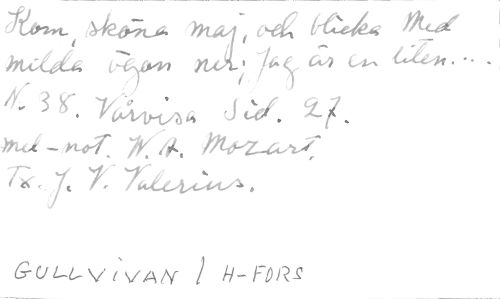 Kom, sköna maj, och blicka Med
milda ögon ner; Jag är en liten...
N. 38. Vårvisa Sid. 27.
mel-not. W. A. Mozart.
Tx. J. V. Valerius.
GULLVIVAN / H-FORS